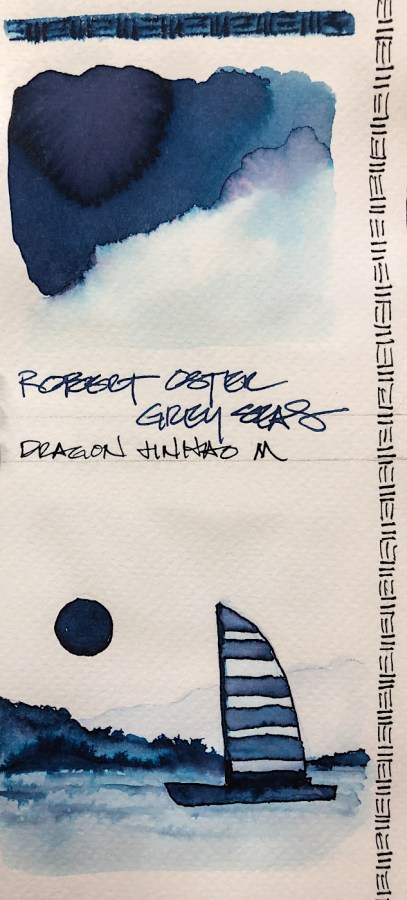 ROBERT OSTER
GREY SEAS
DRAGON JINHAO M